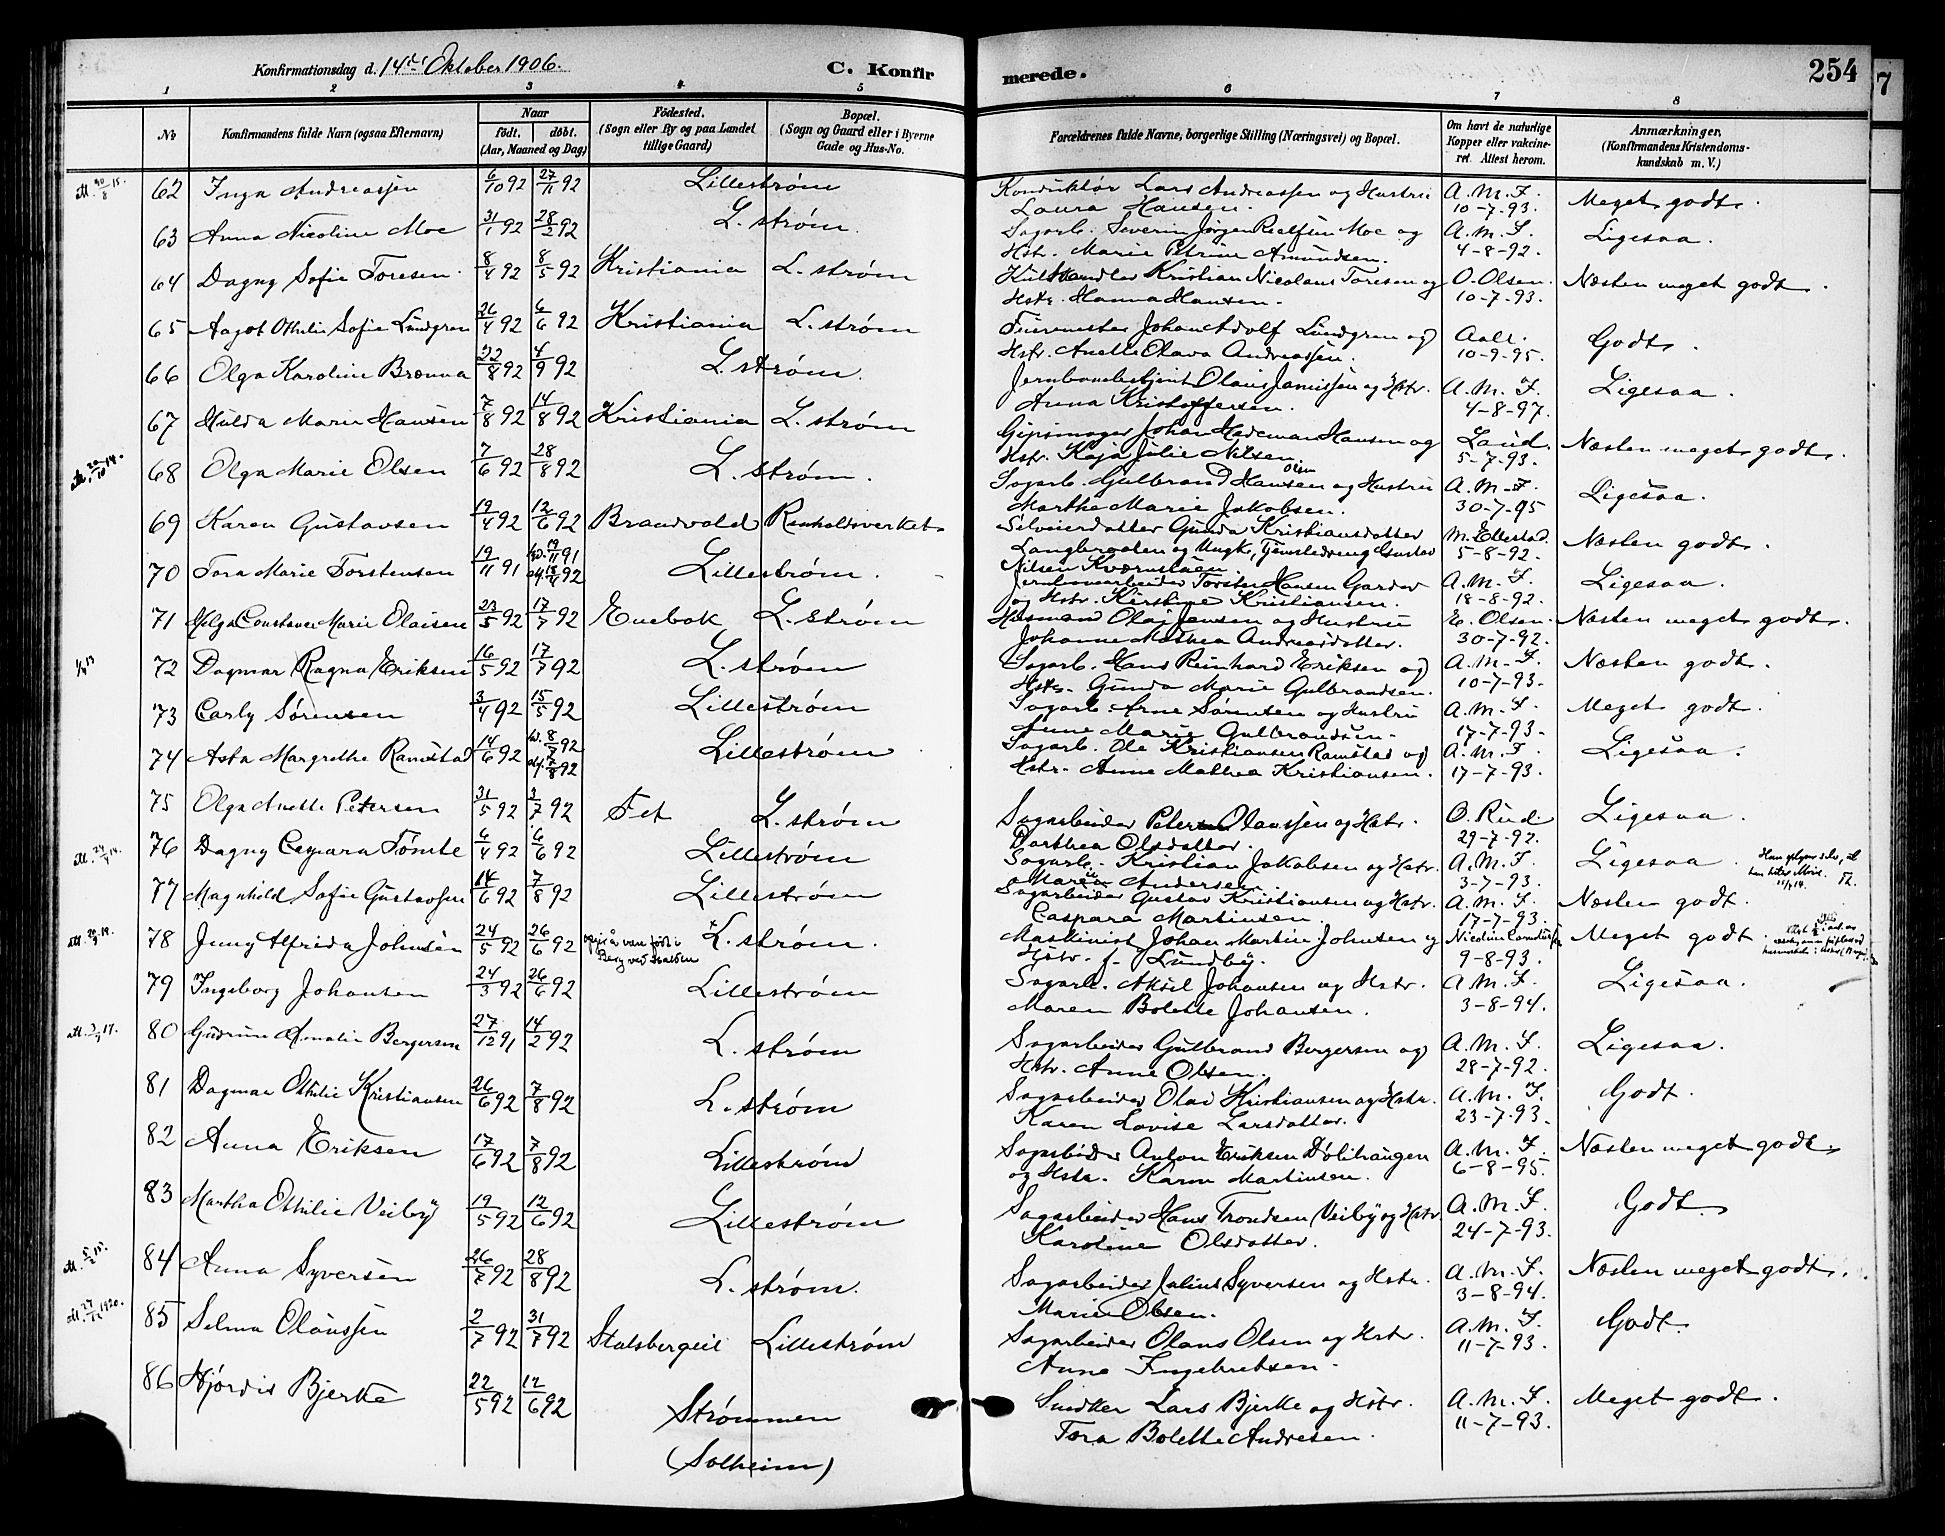 Konfirmationsdag d. 14de Oktober 1906. C. Konfir
merede. 254 7
1 2 3 4 5 6 7 8
No Konfirmandens fulde Navn (ogsaa Efternavn) Naar født. døbt. (Aar, Maaned og Dag) Fødested. (Sogn eller By og paa Landet tillige Gaard) Bopæl. (Sogn og Gaard eller i Byerne Gade og Hus-No.
Forældrenes fulde Navne, borgerlige Stilling (Næringsvei) og Bopæl. Om havt de naturlige Kopper eller vakcineret. Attest herom. Anmærkninger, (Konfirmandens Kristendomskundskab m. V.)
62 Inga Andreassen 6/10 92 27/11 92 Lillestrøm Konduktør Lars Andreassen og Hustru A. M. F. Meget godt.
Laura Hansen. 10-7-93.
63 Anna Nicoline Moe 31/1 92 28/2 92 L. strøm. Sagarb. Severin Jørgen Moe og A. M. F. Ligesaa.
Hstr. Marie Petrine Amundsen. 4-8-92.
64 Dagny Sofie Toresen. 8/4 92 8/5 92 Kristiania L. strøm Kristian Nicolaus Toresen og O. Olsen. Næsten meget godt.
Hstr. Hanna Hansen. 10-7-93.
65 Aagot Othilie Sofie Lundgren 26/4 92 6/6 92 Kristiania L. strøm Johan Adolf Lundgren og Aall. Godt.
Hstr. Anette Olava Andreassen. 10-9-95.
66 Olga Karoline Brænna 22/8 92 4/9 92 L. strøm. Jernbanebetjent Olaus Jamissen og Hstr. A. M. F. Ligesaa.
Anna Kristoffersen. 4-8-97.
67 Hulda Marie Hansen 7/8 92 14/8 92 Kristiania L. strøm Gipsmager Johan Hedeman Hansen og Laud Næsten meget godt.
Hstr. Kaja Julie Nilsen. 5-7-93.
68 Olga Marie Olsen 7/6 92 28/8 92 L. strøm. Sagarb. Gulbrand Hansen Olsen og Hustru A. M. F. Ligesaa.
Marthe Marie Jakobsen. 30-7-95
69 Karen Gustavsen 19/4 92 12/6 92 Brandvold Gunda Kristiansdatter M. Ellestad. Næsten godt.
og Ungk., Gustav 5-8-92.
Nilsen
70 Tora Marie Torstensen 19/11 91 Lillestrøm. Jernbanearbeider Torsten Hansen Garder A. M. F. Ligesaa.
og Hstr. Kirstine Kristiansen. 18-8-92.
71 Helga Constance Marie Olaisen 23/5 92 17/7 92 Enebak L. strøm Husmand Olaj Jensen og Hustru E. Olsen. Næsten meget godt.
Johanne Mathea Andreasdatter. 30-7-92.
72 Dagmar Ragna Eriksen 16/5 92 17/7 92 L. strøm Sagarb. Hans Reinhard Eriksen og A. M. F. Næsten godt.
Hstr. Gunda Marie Gulbrandsen. 10-7-93.
73 Carly Sørensen 3/4 92 15/5 92 Lillestrøm Sagarb. Arne Sørensen og Hustru A. M. F. Meget godt.
Anne Marie Gulbrandsen. 17-7-93.
74 Asta Margrethe Ramstad 14/6 92 Lillestrøm Sagarb. Ole Kristiansen Ramstad og A. M. F. Ligesaa.
Hstr. Anne Mathea Kristiansen. 17-7-93.
75 Olga Anette Petersen 31/5 92 3/7 92 Fet L. strøm Sagarbeider Peter Olaussen og Hstr. O. Rud Ligesaa.
Dorthea Olsdatter. 29-7-92.
76 Dagny Cespara Tømte 6/4 92 6/6 92 Lillestrøm Sagarb. Kristian Jakobsen og Hstr. A. M. F. Ligesaa.
Andersen. 3-7-93.
77 Magnhild Sofie Gustavsen 14/6 92 7/8 92 Lillestrøm Sagarbeider Gustav Kristiansen og Hstr. A. M. F. Næsten godt.
Caspara Martinsen. 17-7-93.
78 Jenny Alfrida Johnsen 24/5 92 26/6 92 L. strøm. Maskinist Johan Martin Johnsen og Meget godt.
Hstr. f. Lundby. 9-8-93.
79 Ingeborg Johansen 24/3 92 26/6 92 Lillestrøm Sagarb. Aksel Johansen og Hstr. A. M. F. Ligesaa.
Maren Bolette Johansen. 3-8-94.
80 Gudrun Amalie Bergersen 27/12 91 14/2 92 L. strøm Sagarbeider Gulbrand Bergersen og A. M. F. Ligesaa.
Hstr. Anne Olsen. 28-7-92.
81 Dagmar Othilie Kristiansen 26/6 92 7/8 92 L. strøm Sagarbeider Olav Kristiansen og Hstr. A. M. F. Godt.
Karen Lovise Larsdatter. 23-7-93.
82 Anna Eriksen 17/6 92 7/8 92 Lillestrøm Sagarbeider Anton Eriksen Dølihaugen A. M. F. Næsten meget godt.
og Hstr. Karen Martinsen. 6-8-95.
83 Martha Othilie Veiby 19/5 92 12/6 92 Lillestrøm Sagarbeider Hans Trondsen Veiby og Hstr. A. M. F. Godt.
Karoline Olsdatter. 24-7-93.
84 Anna Syversen 26/7 92 28/8 92 L. strøm. Sagarbeider Julius Syversen og Hstr. A. M. F. Næsten meget godt.
Marie Olsen. 3-8-94.
85 Selma Olaussen 2/7 92 31/7 92 Stalsbergeie Lillestrøm Sagarbeider Olaus Olsen og Hstr. A. M. F. Godt.
Anne Ingebretsen. 11-7-93.
86 Hjørdis Bjerke 22/5 92 12/6 92 Strømmen Snedker Lars Bjerke og Hstr. A. M. F. Meget godt.
(Solheim) Tora Bolette Andresen. 11-7-93.